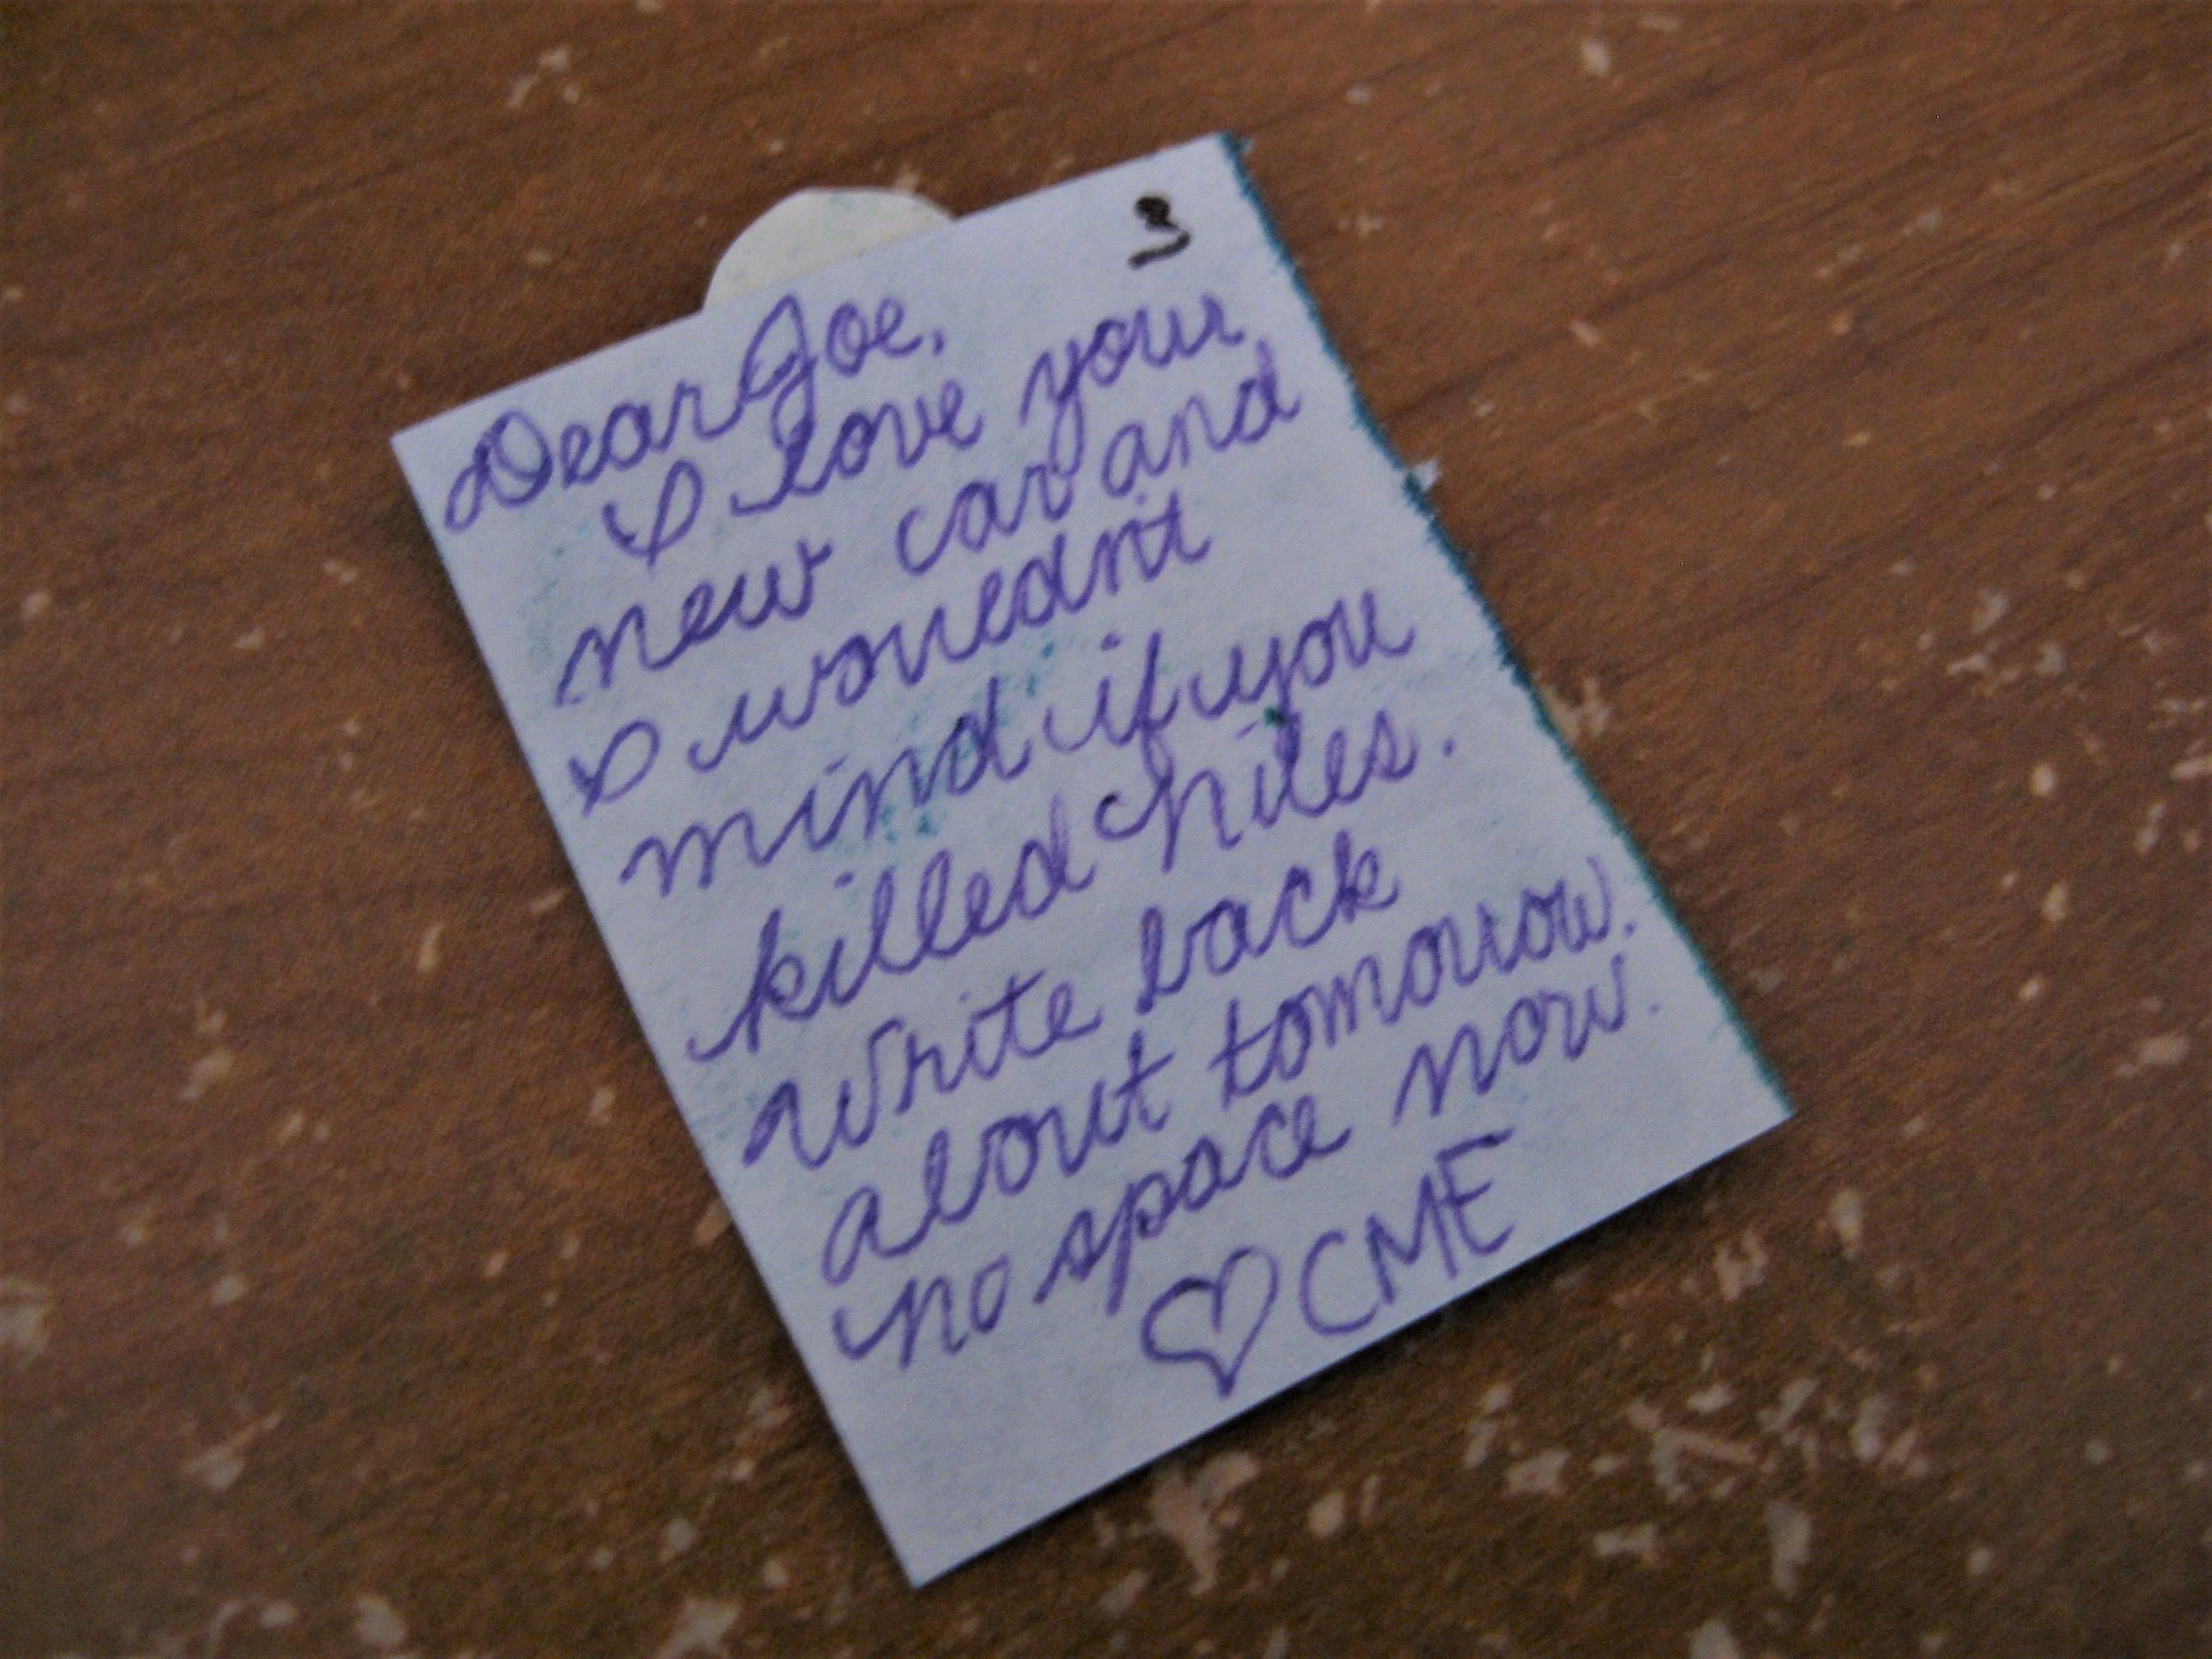 3
Dear Joe,
I love your
new car and
I wouednt
mind if you
killed chiles.
Write back
about tomorrow.
no space now.
♡ CME